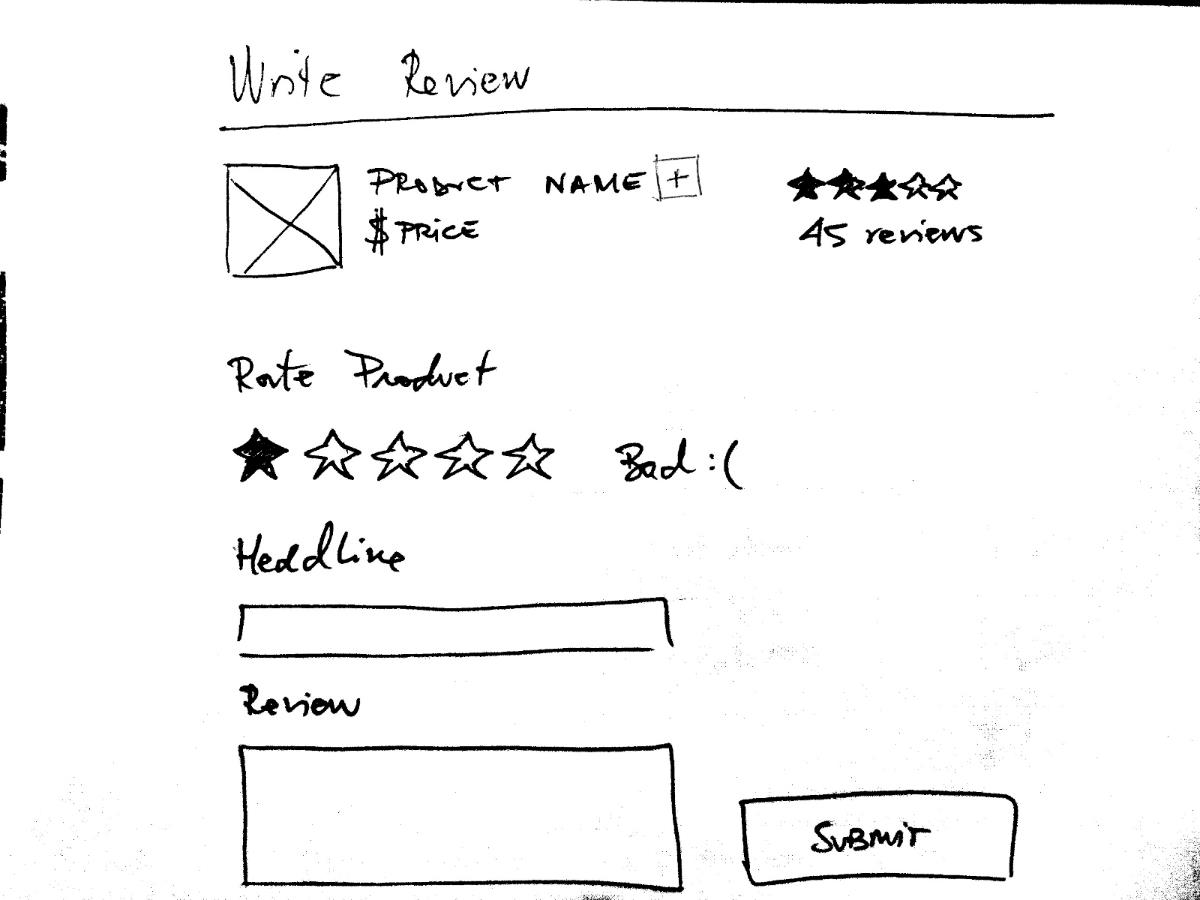 Write Review
PRODUCT NAME +
$ PRICE
45 reviews
Rate Product
Bad :(
Headline
Review
SUBMIT